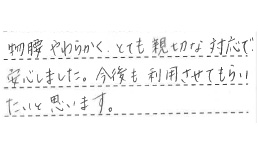 物腰やわらかく、とても親切な対応で
安心しました。今後も利用させてもらい
たいと思います。